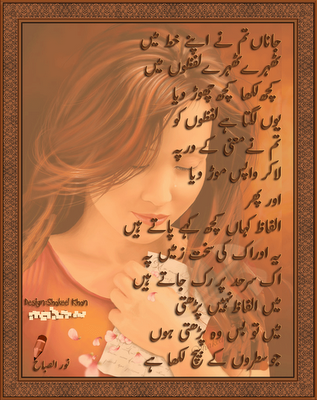 جاناں تم نے اپنے خط میں
ٹھہرے ٹھہرے لفظوں میں
کچھ لکھا کچھ چھوڑ دیا
یوں لگتا ہے لفظوں کو
تم نے معنی کے در پہ
لا کر واپس موڑ دیا
اور پھر
الفاظ کہاں کچھ کہہ پاتے ہیں
یہ ادراک کی سخت زمیں پہ
اک سرحد پر رک جاتے ہیں
میں الفاظ نہیں پڑھتی
میں تو بس وہ پڑھتی ہوں
جو سطروں کے بیچ لکھا ہے
Design:Shakeel Khan
نور الصباح